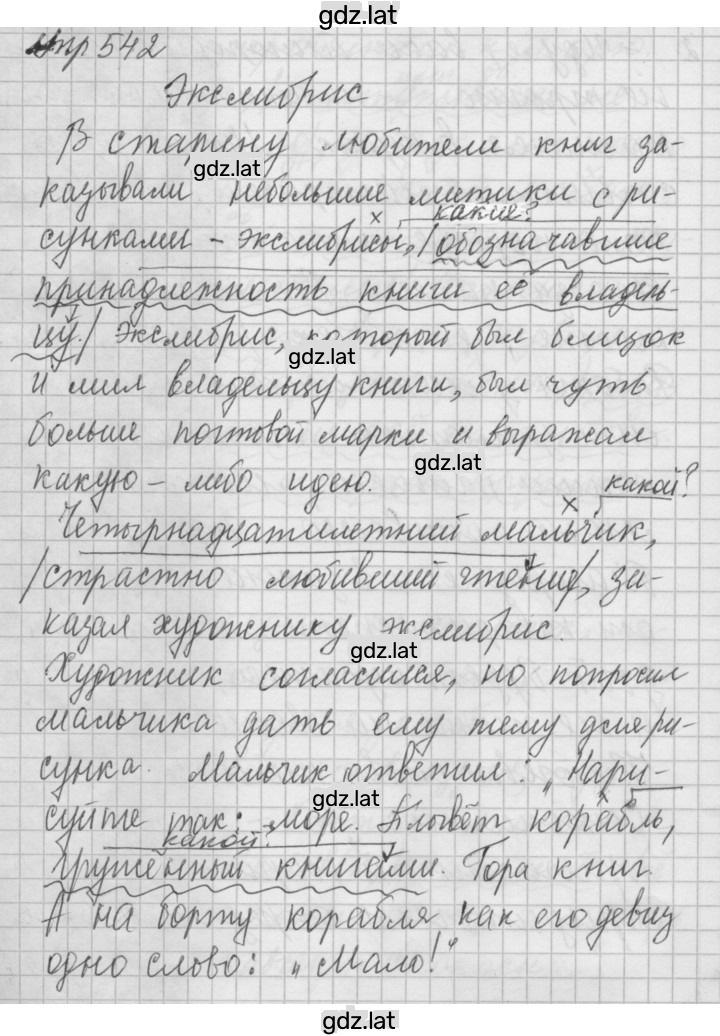 gdz.lat
Упр 542
Экслибрис
В старину любители книг за-
gdz.lat
казывали небольшие листики с ри-
какие?
сунками – экслибрисы, /обозначавшие
принадлежность книги её владель-
цу./ Экслибрис, который был близок
gdz.lat
и мил владельцу книги, был чуть
больше почтовой марки и выражал
gdz.lat
какую – либо идею.
какой?
Четырнадцатилетний мальчик,
/страстно любивший чтение/, за-
казал художнику экслибрис.
gdz.lat
Художник согласился, но попросил
мальчика дать ему тему для ри-
сунка. Мальчик ответил: „Нари-
gdz.lat
суйте так: море. Плывёт корабль,
какой?
гружённый книгами. Гора книг.
А на борту корабля как его девиз
одно слово: „Мало!“
gdz.lat